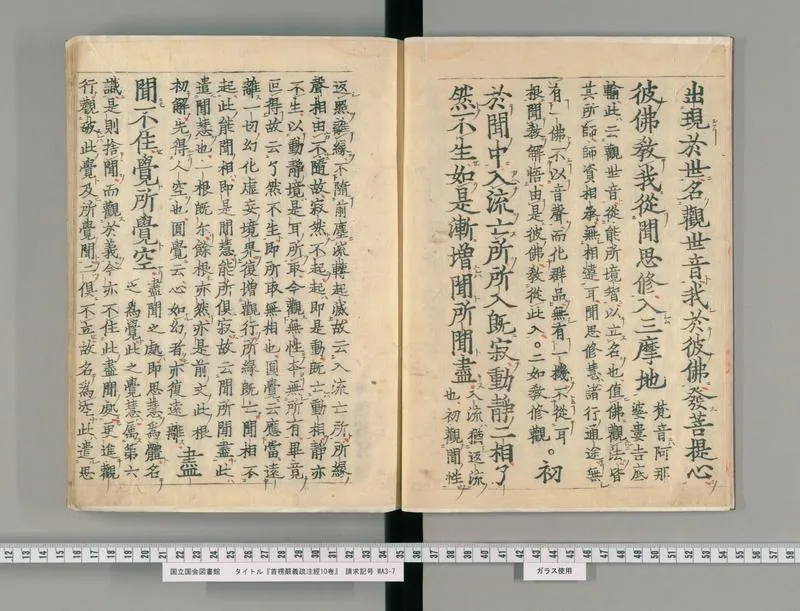 出現於世名觀世音我於彼佛發菩提心
彼佛教我從聞思修入三摩地
梵音阿那
婆婁吉底
輸此云觀世音從能所境智以立名也值佛觀法皆
其所師師資相承無相違耳聞思修慧諸行通途無
有一佛不以音聲而化群品無有一機不從耳
根聞教解悟由是彼佛教從此入。二如教修觀。初
於聞中入流亡所所入既寂動靜二相了
然不生如是漸增聞所聞盡
入流猶返流
也初觀聞性
返照離緣不隨前塵流轉起滅故云入流亡所所緣
聲相由不隨故寂然不起起即是動既亡動相靜亦
不生以動靜境是耳所取今觀無性本無所有畢竟
叵得故云了然不生即所取無相也圓覺云應當遠
離一切幻化虛妄境界復增觀行所緣既亡聞相不
起此能聞相即是聞慧能所俱寂故云聞所聞盡此
遣聞慧也一根既尔餘根亦然亦是前文此根
初解先得人空也圓覺云心如幻者亦復遠離 盡
聞不住覺所覺空
盡聞之處即思慧為體名
之為覺此之覺慧為第六
識是則捨聞而觀於義今亦不住此盡聞處更進觀
行觀故此覺及所覺聞二俱不立故名為空此遣思
12 13 14 15 16 17 18 19 20 21 22 23 24 25 26 27 28 29 30 31 32 33 34 35 36 37 38 39 40 41 42 43 44 45 46 47 48 49 50 51 52 53 54 55 56 57 58
国立国会図書館 タイトル『首楞嚴義疏注經10巻』 請求記号 WA3-7
ガラス使用